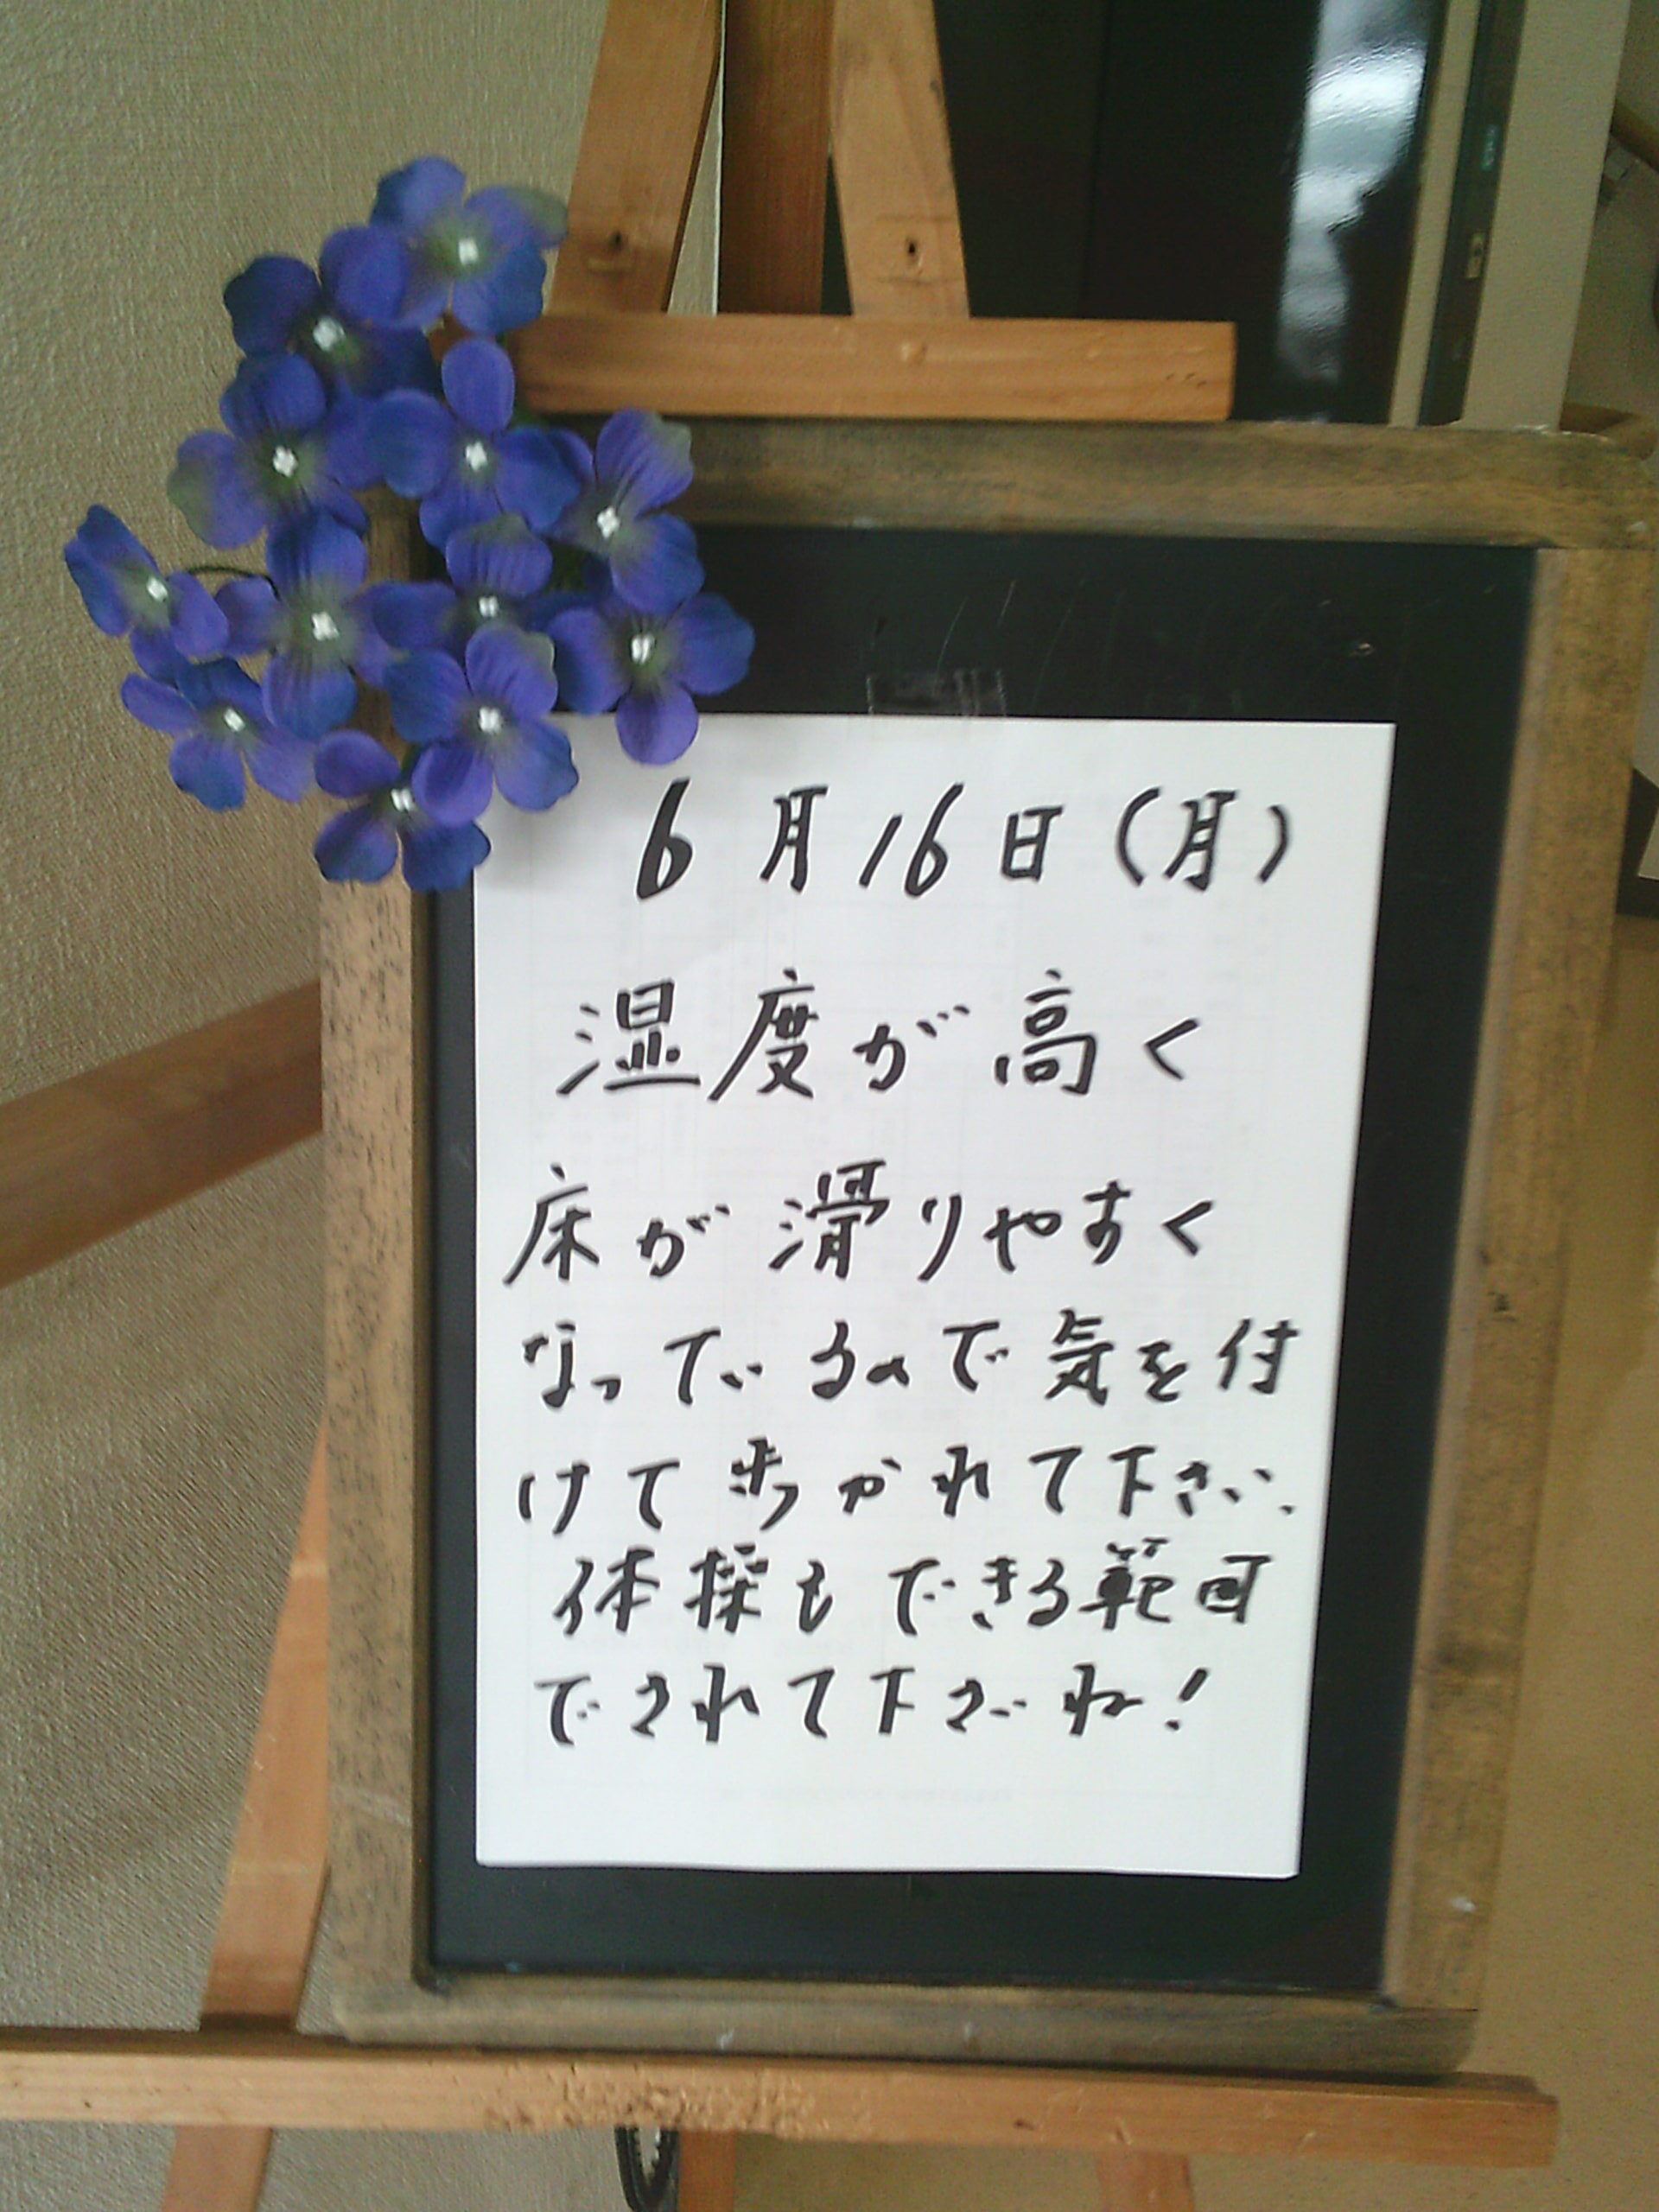 6月16日(月)
湿度が高く
床が滑りやすく
なっているので気を付
けて歩かれて下さい、
体操もできる範囲
でされて下さいね！